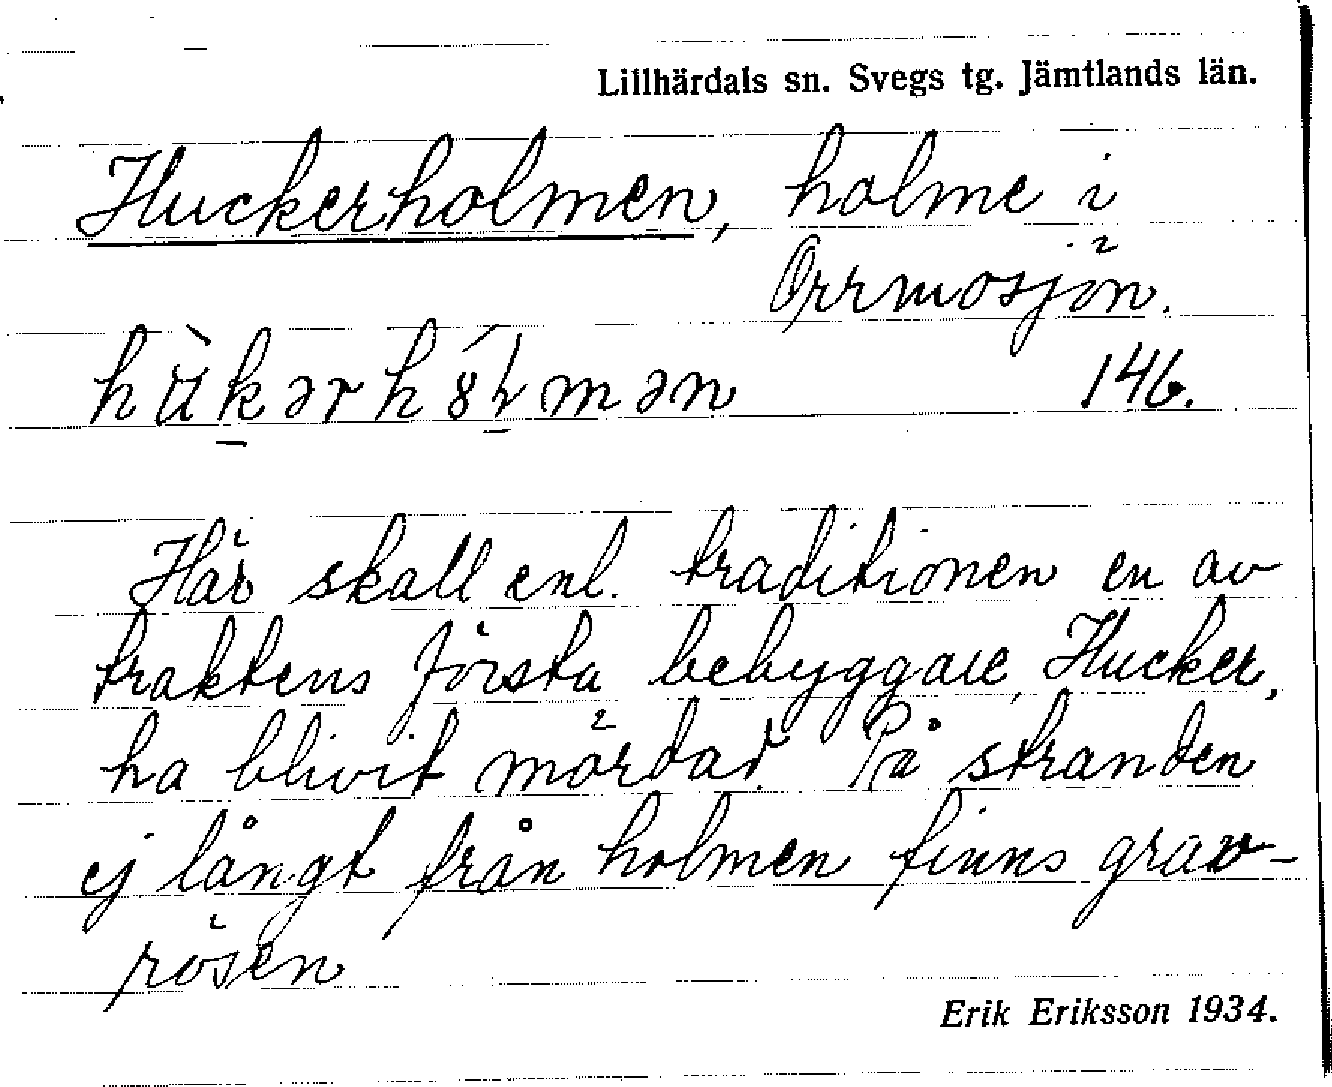 Lillhärdals sn. Svegs tg. Jämtlands län.
Huckerholmen, holme i
Orrmosjön.
hu̇̀kərhȣ́ɫmən 146.
Här skall enl. traditionen en av
traktens första bebyggare, Hucker,
ha blivit mördad. På stranden
ej långt från holmen finns grav-
rösen
Erik Eriksson 1934.